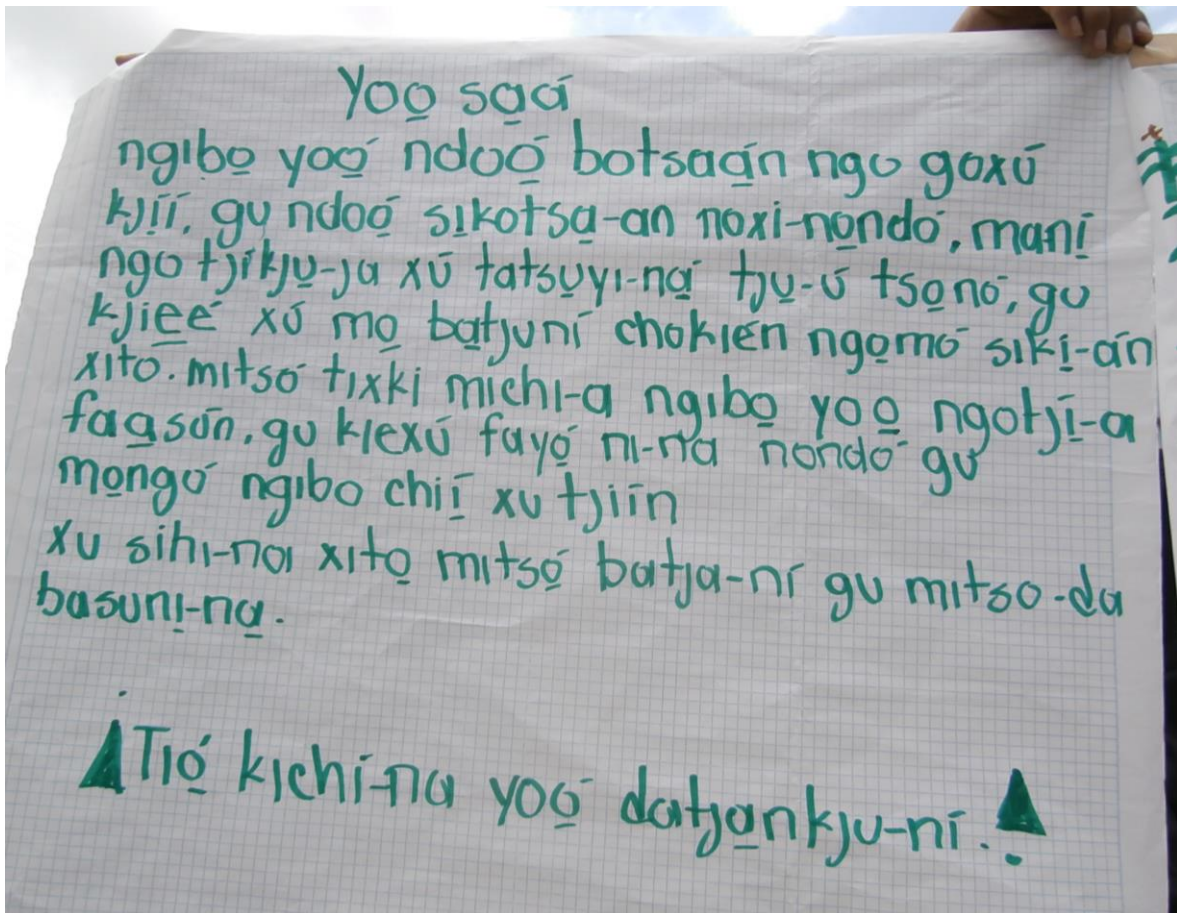 Yoo̱ sa̱á
ngibo̱ yoó̱ ndoó̱ botsaá̱n ngo goxú
kjíi̱, gu ndoó̱ sikotsa̱-an noxi-no̱ndó, maní̱
ngo tjíkju̱-ja xú tatsu̱yi-ná̱ tju̱-ú tso̱nó, gu
kjie̱é̱ xú mo̱ ba̱tjuní chokién ngo̱mó siki̱-án
xitó. mitsó tixki michi-a ngibo̱ yoo̱ ngotjí̱-a
faa̱sún, gu kiexú fayó̱ ni-ná nondó gu
mo̱ngó ngibo chií̱ xu tjíín
xu sihi-nai xito̱ mitsó̱ batja-ní gu mitso-da
basuni̱-na̱.
¡Tió̱ kichí-na yoó̱ datja̱nkju-ní.!